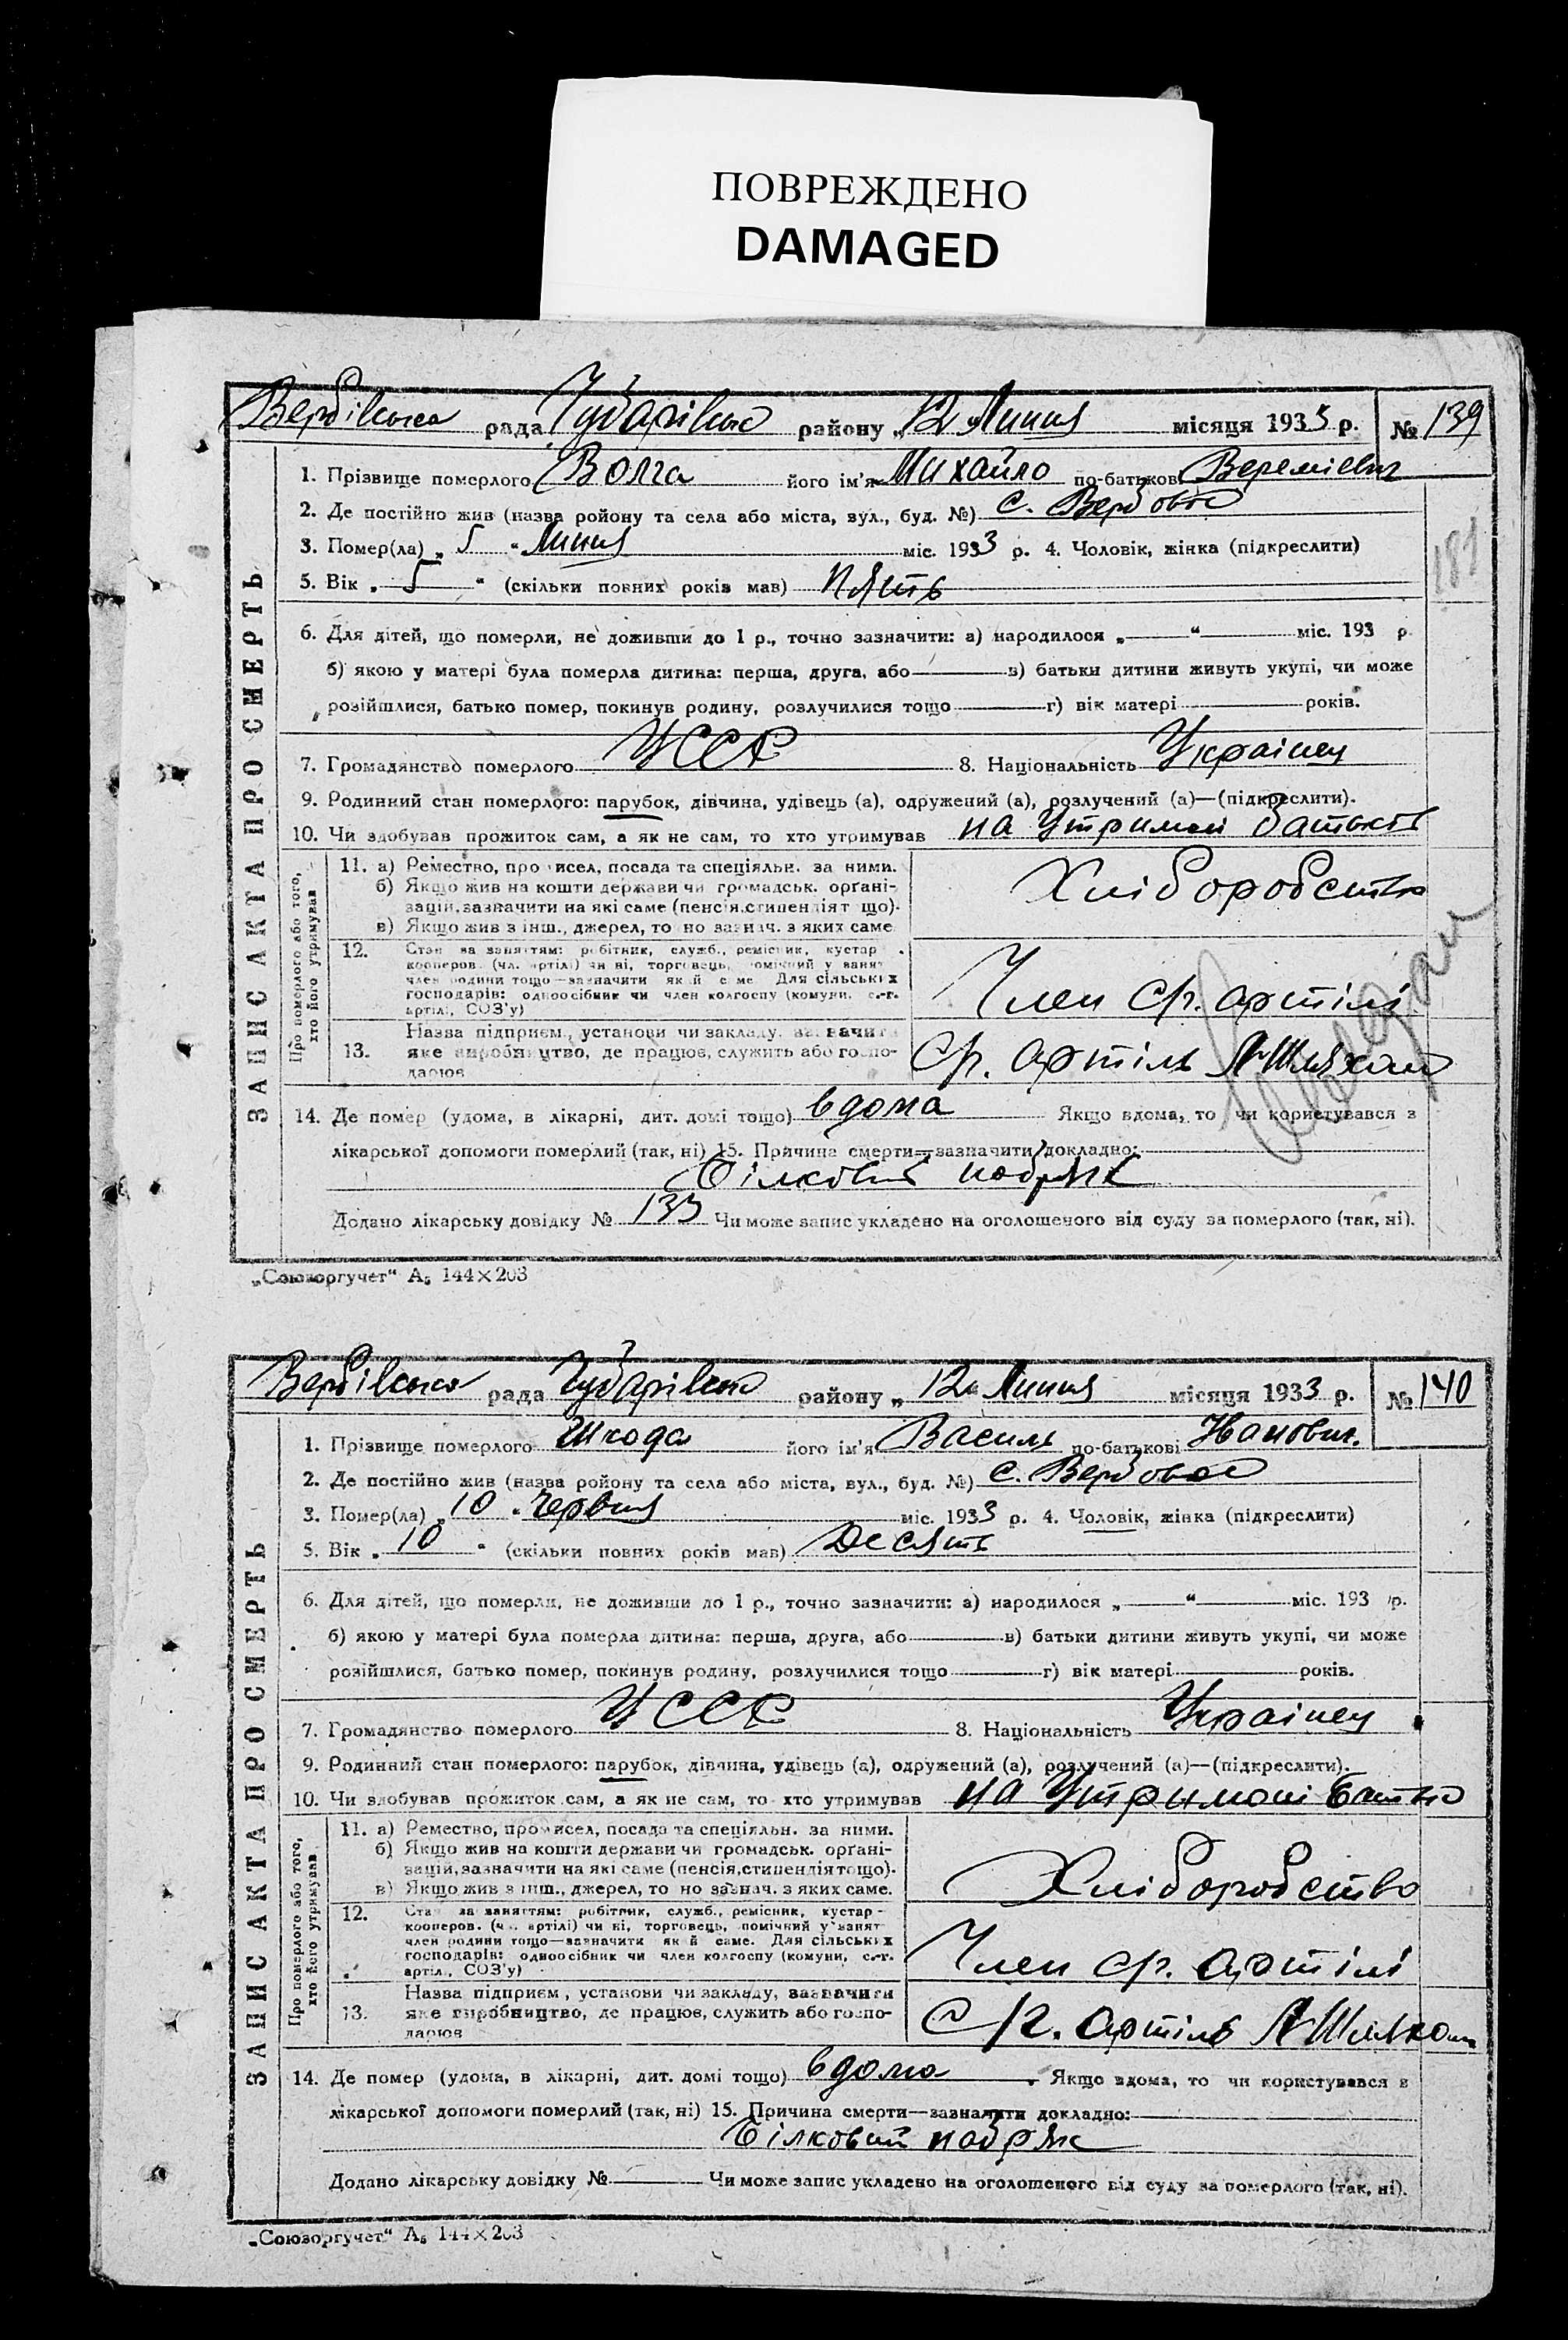 ПОВРЕЖДЕНО
DAMAGED
Вербівська рада Чубарівсько району „12" Липня місяця 1933 р. № 139
1. Прізвище померлого Волга його ім'я Михайло по-батькові Веремієвич
2. Де постійно жив (назва ройону та села або міста, вул., буд. №) с. Вербове
3. Помер(ла) „5" Липня міс. 1933 р. 4. Чоловік, жінка (підкреслити)
5. Вік „5" (скільки повних років мав) пять
181
6. Для дітей, що померли, не доживши до 1 р., точно зазначити: а) народилося „—"— міс. 193 р.
б) якою у матері була померла дитина: перша, друга, або — в) батьки дитини живуть укупі, чи може
розійшлися, батько помер, покинув родину, розлучилися тощо — г) вік матері — років.
7. Громадянство померлого УССР 8. Національність Українец
9. Родинний стан померлого: парубок, дівчина, удівець (а), одружений (а), розлучений (а)—(підкреслити).
10. Чи здобував прожиток сам, а як не сам, то хто утримував на Утримані батьків
11. а) Ремество, промисел, посада та спеціяльн. за ними.
б) Якщо жив на кошти держави чи громадськ. орґані-
зацій, зазначити на які саме (пенсія, стипендія т що).
в) Якщо жив з інш., джерел, то но зазнач. з яких саме
Хліборобство
12. Стан за заняттям: робітник, служб., ремісник, кустар
кооперов. (чл. артілі) чи ні, торговець, помічний у занят
член родини тощо—зазначити як й с ме Для сільських
господарів: одноосібник чи член колгоспу (комуни, с.-г.
артілі, СОЗ'у)
Член ср. артілі
13. Назва підприєм., установи чи закладу, зазначити
яке виробництво, де працює, служить або госпо-
дарює
Ср. артіль Л-Шляхом
Про померлого або того,
хто його утримував
14. Де помер (удома, в лікарні, дит. домі тощо) вдома Якщо вдома, то чи користувався з
лікарської допомоги померлий (так, ні) 15. Причина смерти—зазначити докладно:
Білковий набряк
Додано лікарську довідку № 133 Чи може запис укладено на оголошеного від суду за померлого (так, ні).
ЗАПИС АКТА ПРО СМЕРТЬ
„Союзоргучет" А₅ 144×203
Вербівсько рада Чубарівсько району „12" Липня місяця 1933 р. № 140
1. Прізвище померлого Шкода його ім'я Василь по-батькові Іванович.
2. Де постійно жив (назва ройону та села або міста, вул., буд. №) с. Вербове
3. Помер(ла) „10" Червня міс. 1933 р. 4. Чоловік, жінка (підкреслити)
5. Вік „10" (скільки повних років мав) Десять
6. Для дітей, що померли, не доживши до 1 р., точно зазначити: а) народилося „—"— міс. 193 р.
б) якою у матері була померла дитина: перша, друга, або — в) батьки дитини живуть укупі, чи може
розійшлися, батько помер, покинув родину, розлучилися тощо — г) вік матері — років.
7. Громадянство померлого УССР 8. Національність Українец
9. Родинний стан померлого: парубок, дівчина, удівець (а), одружений (а), розлучений (а)—(підкреслити).
10. Чи здобував прожиток сам, а як не сам, то хто утримував на Утримані батько
11. а) Ремество, промисел, посада та спеціяльн. за ними.
б) Якщо жив на кошти держави чи громадськ. орґані-
зацій, зазначити на які саме (пенсія, стипендія тощо).
в) Якщо жив з інш., джерел, то но зазнач. з яких саме.
Хліборобство
12. Стан за заняттям: робітник, служб., ремісник, кустар-
кооперов. (чл. артілі) чи ні, торговець, помічний у занят
член родини тощо—зазначити як й саме. Для сільських
господарів: одноосібник чи член колгоспу (комуни, с.-г.
артілі, СОЗ'у)
Член ср. артілі
13. Назва підприєм, установи чи закладу, зазначити
яке виробництво, де працює, служить або госпо-
дарює
Ср. артіль Л-Шляхом
Про померлого або того,
хто його утримував
14. Де помер (удома, в лікарні, дит. домі тощо) вдома Якщо вдома, то чи користувався з
лікарської допомоги померлий (так, ні) 15. Причина смерти—зазначити докладно:
Білковий набряк
Додано лікарську довідку № — Чи може запис укладено на оголошеного від суду за померлого (так, ні).
ЗАПИС АКТА ПРО СМЕРТЬ
„Союзоргучет" А₅ 144×203